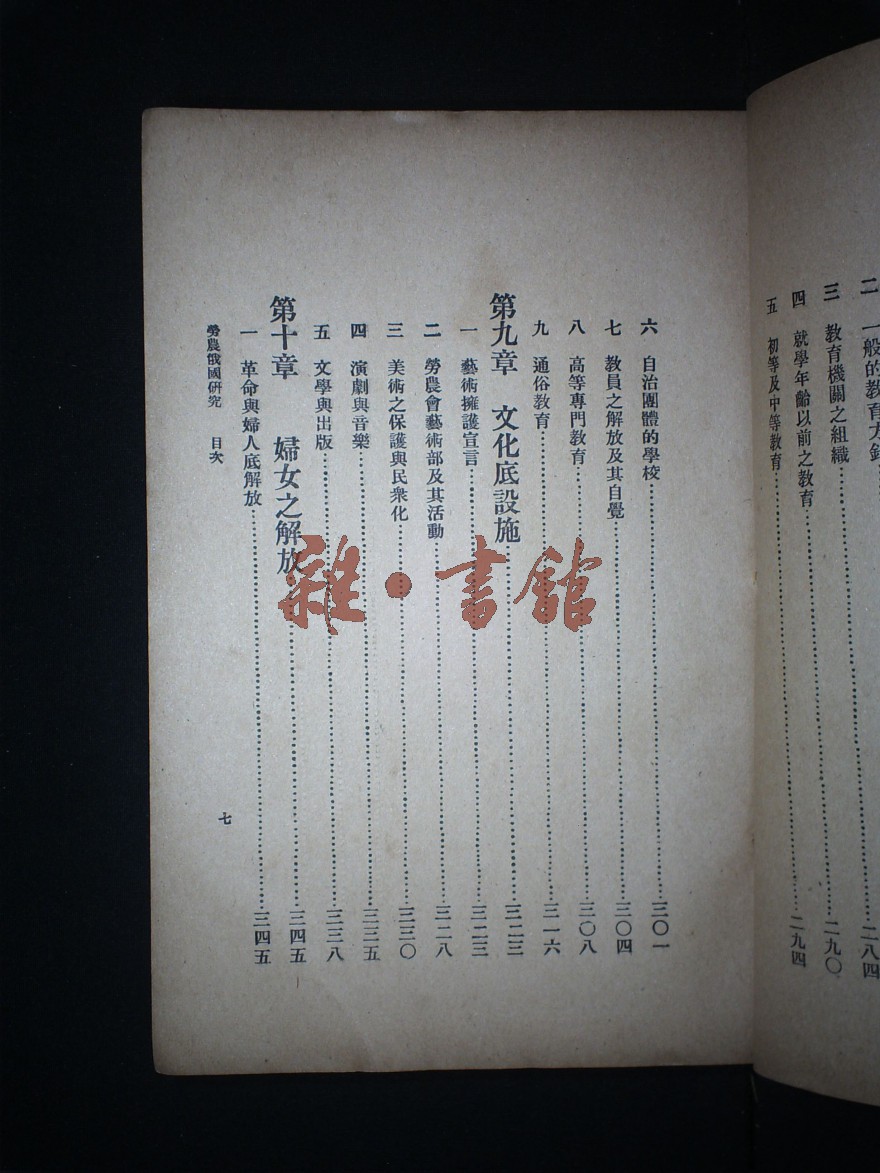 二　一般的教育方針……二八四
三　教育機關之組織……二九〇
四　就學年齡以前之教育……二九四
五　初等及中等教育……
六　自治團體的學校……三〇一
七　教員之解放及其自覺……三〇四
八　高等專門教育……三〇八
九　通俗教育……三一六
第九章　文化底設施……三二三
一　藝術擁護宣言……三二三
二　勞農會藝術部及其活動……三二八
三　美術之保護與民衆化……三三〇
四　演劇與音樂……三三五
五　文學與出版……三三八
第十章　婦女之解放……三四五
一　革命與婦人底解放……三四五
勞農俄國研究　目次　七
雜·書館